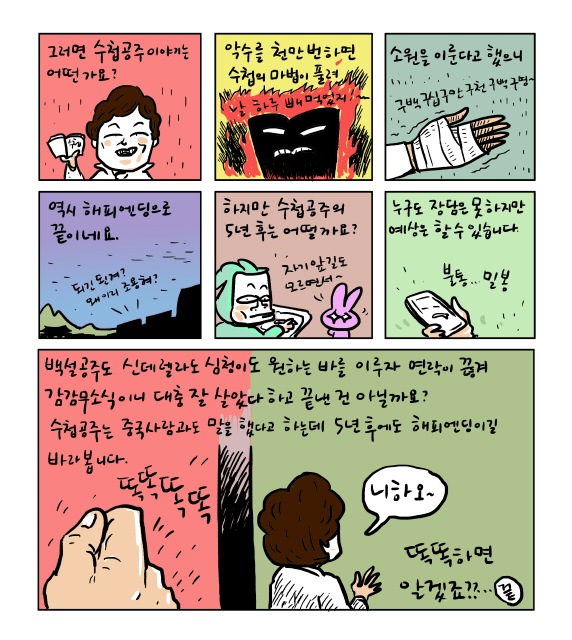 그러면 수첩공주 이야기는
어떤가요?
수첩
악수를 천만 번 하면
수첩의 마법이 풀려
날 하루 빼먹었지!~
소원을 이룬다고 했으니
구백구십구만 구천 구백 구명~
역시 해피엔딩으로
끝이네요.
되긴 된겨?
왜 이리 조용혀?
하지만 수첩공주의
5년 후는 어떨까요?
자기 앞길도
모르면서~
누구도 장담은 못하지만
예상은 할 수 있습니다.
불통... 밀봉
백설공주도 신데렐라도 심청이도 원하는 바를 이루자 연락이 끊겨
감감무소식이니 대충 잘 살았다 하고 끝낸 건 아닐까요?
수첩공주는 중국사람과도 말을 했다고 하는데 5년 후에도 해피엔딩이길
바라봅니다.
똑똑똑똑
니하오~
똑똑하면
알겠죠??...
끝